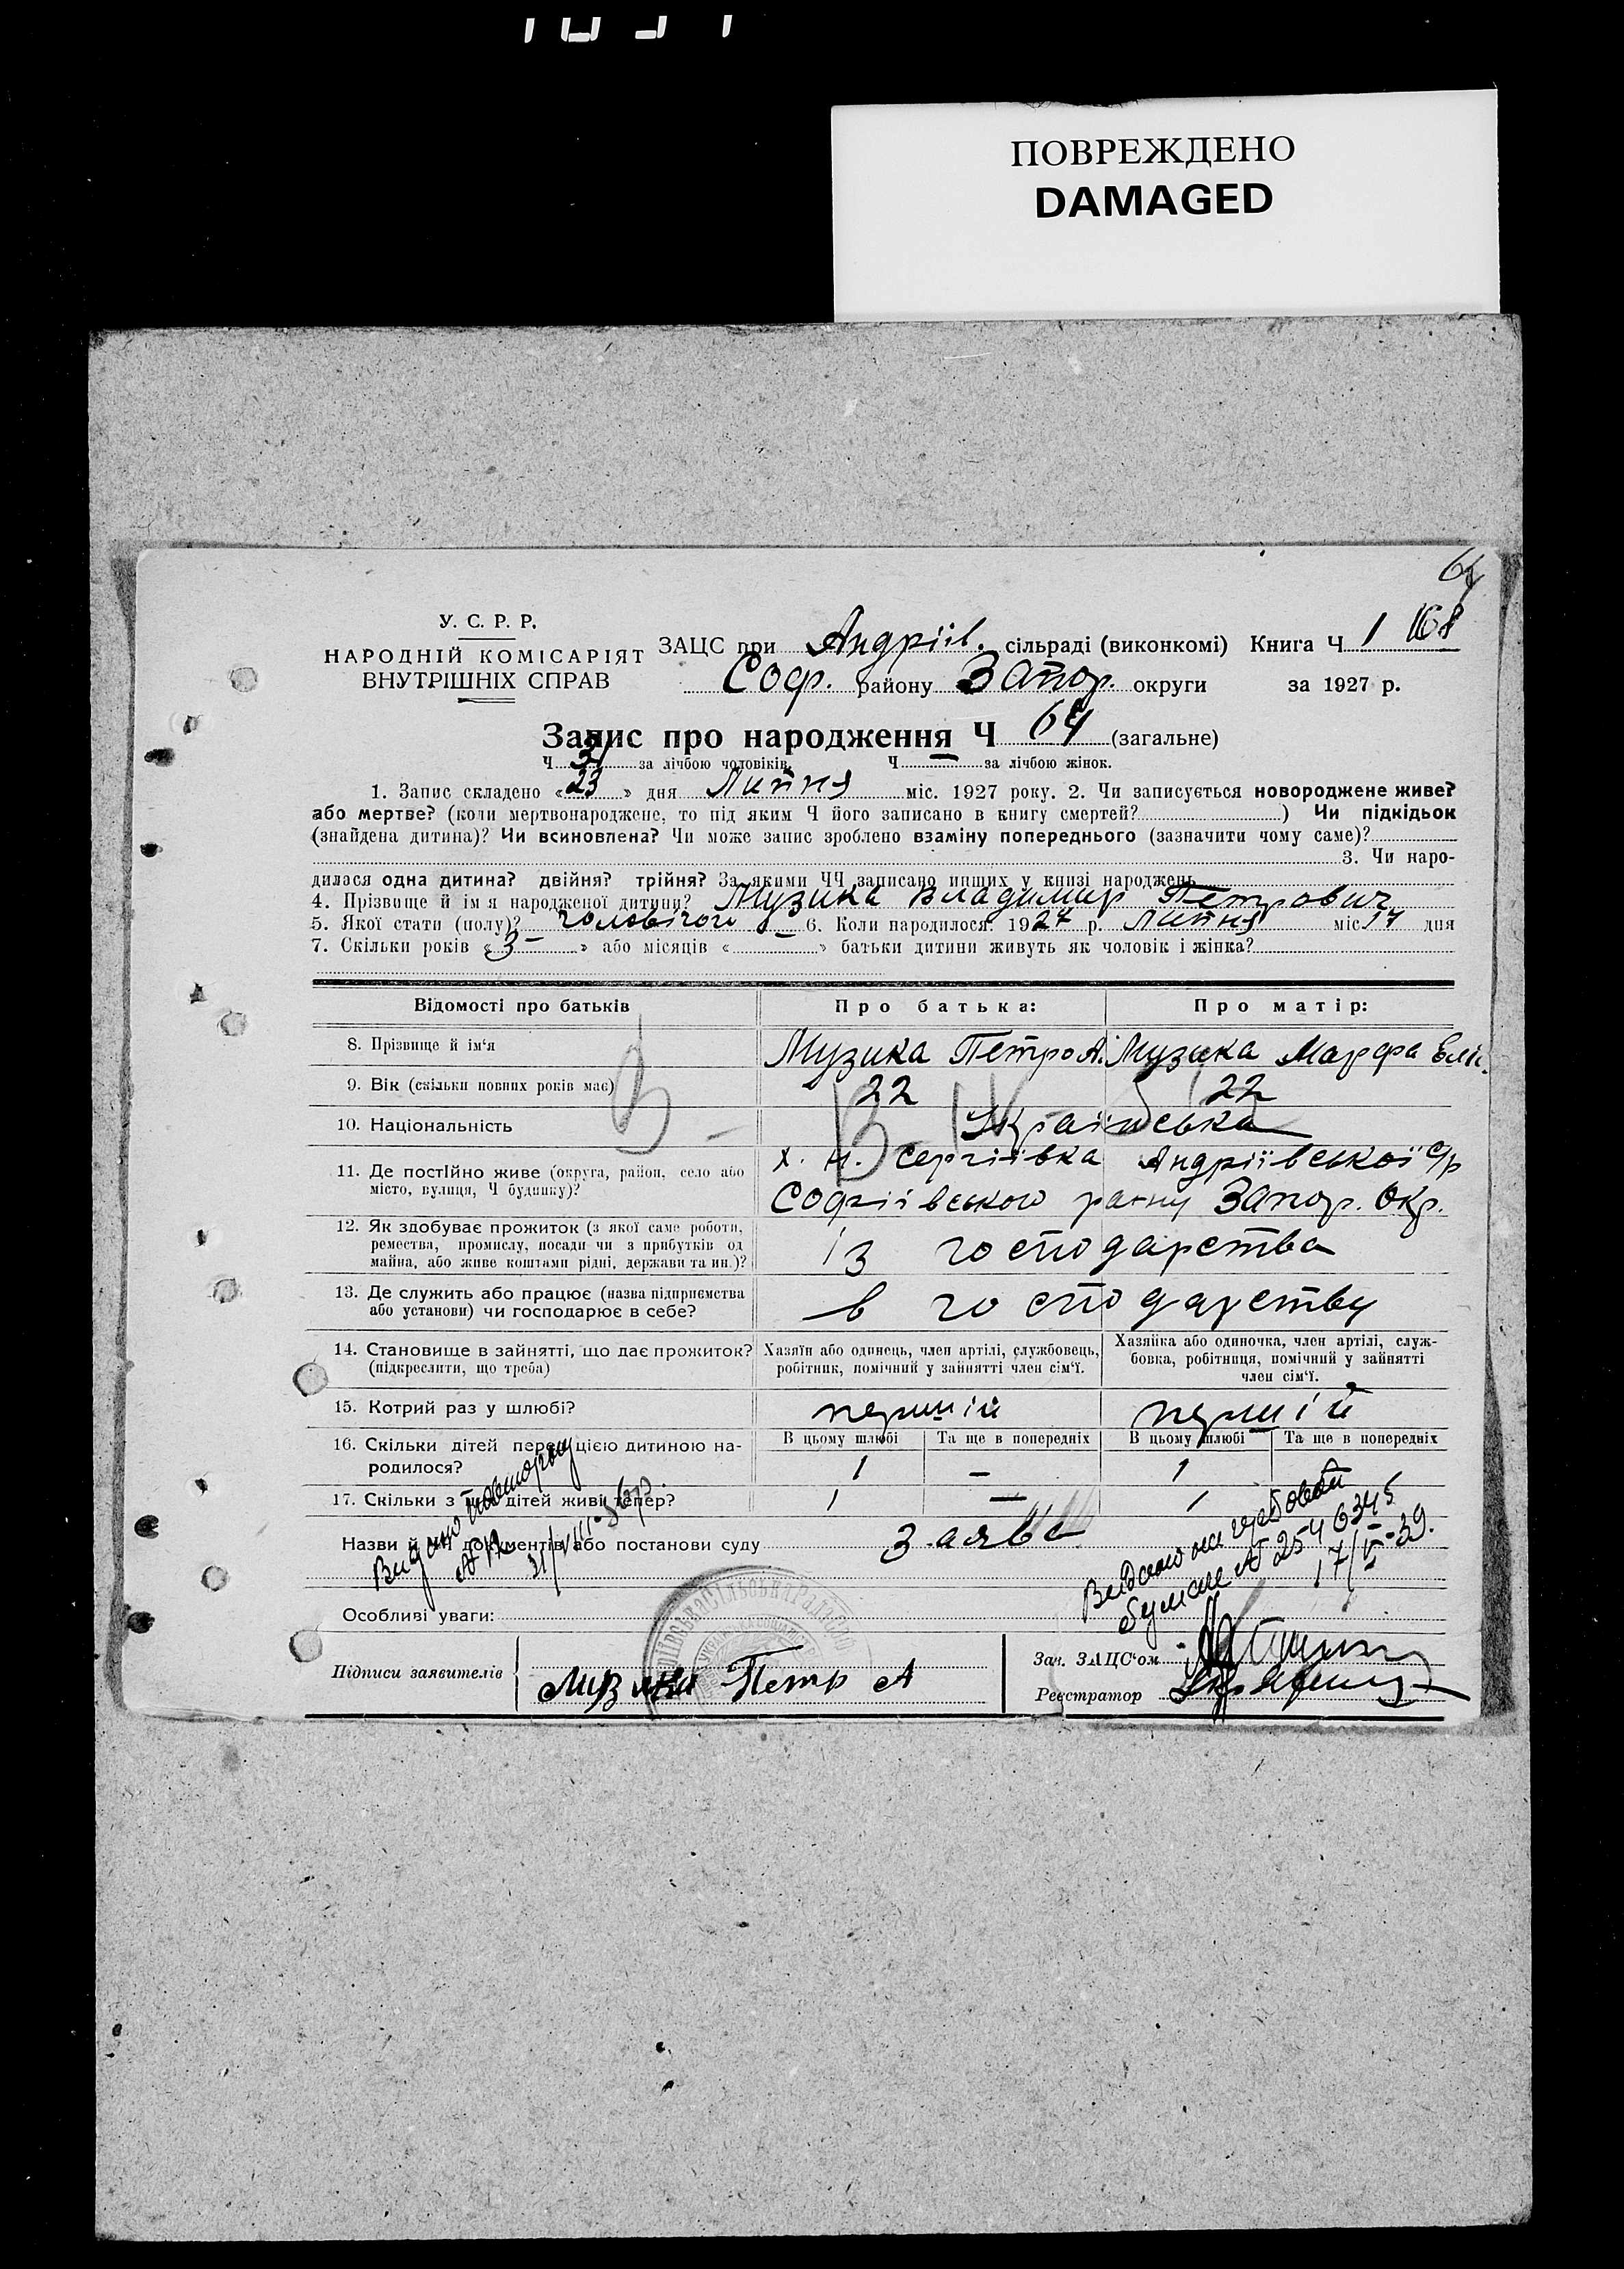 ПОВРЕЖДЕНО
DAMAGED
64
У. С. Р. Р.
НАРОДНІЙ КОМІСАРІЯТ
ВНУТРІШНІХ СПРАВ
ЗАЦС при Андріїв. сільраді (виконкомі) Книга Ч 1 168
Соф. району Запор. округи за 1927 р.
Запис про народження Ч 64 (загальне)
Ч 31 за лічбою чоловіків. Ч за лічбою жінок.
1. Запис складено «23» дня Липня міс. 1927 року. 2. Чи записується новороджене живе?
або мертве? (коли мертвонароджене, то під яким Ч його записано в книгу смертей? ) Чи підкідьок
(знайдена дитина)? Чи всиновлена? Чи може запис зроблено взаміну попереднього (зазначити чому саме)?
3. Чи наро-
дилася одна дитина? двійня? трійня? За якими ЧЧ записано инших у книзі народжень
4. Прізвище й ім'я народженої дитини? Музика Владимир Петрович
5. Якої стати (полу)? чоловічого 6. Коли народилося: 1927 р. Липня міс. 17 дня
7. Скільки років «3-» або місяців « » батьки дитини живуть як чоловік і жінка?
Відомості про батьків
Про батька:
Про матір:
8. Прізвище й ім'я
Музика Петро А.
Музика Марфа
9. Вік (скільки повних років має)
22
22
10. Національність
Українська
11. Де постійно живе (округа, район, село або
місто, вулиця, Ч будинку)?
х. н. Сергіївка Андріївської с/р
Софіївського району Запор. Окр.
12. Як здобуває прожиток (з якої саме роботи,
ремества, промислу, посади чи з прибутків од
майна, або живе коштами рідні, держави та ин.)?
із господарства
13. Де служить або працює (назва підприємства
або установи) чи господарює в себе?
в господарству
14. Становище в зайнятті, що дає прожиток?
(підкреслити, що треба)
Хазяїн або одинець, член артілі, службовець,
робітник, помічний у зайнятті член сім'ї.
Хазяйка або одиночка, член артілі, служ-
бовка, робітниця, помічний у зайнятті
член сім'ї.
15. Котрий раз у шлюбі?
першій
першій
16. Скільки дітей перед цією дитиною на-
родилося?
В цьому шлюбі
Та ще в попередніх
В цьому шлюбі
Та ще в попередніх
1
—
1
17. Скільки з тих дітей живі тепер?
1
—
1
Назви й ЧЧ документів або постанови суду
заява
Видано повторну
31/VIII-
Видано на гербовой
бумаге № 2546345
17/V-39.
Особливі уваги:
Підписи заявителів
Музика Петр А
Зав. ЗАЦС'ом
Реєстратор